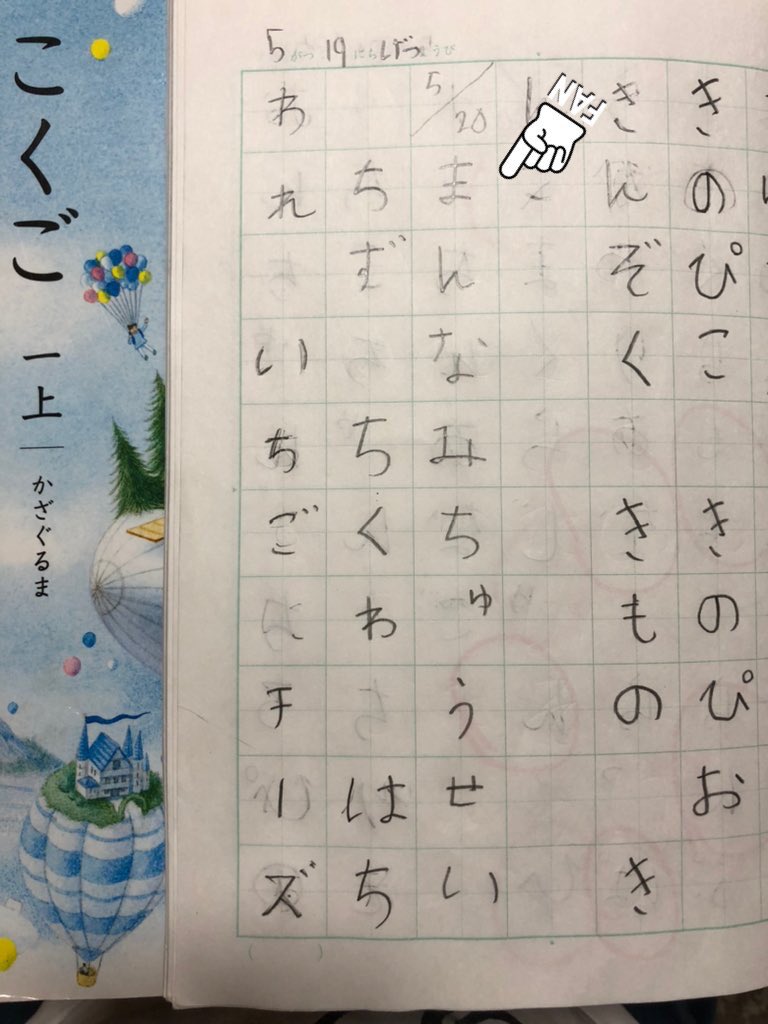 こくご 一上
かざぐるま
5がつ19にちげつようび
きのぴこ きのぴお
きんぞく きもの き
FAN
5/20 まんなみちゅうせい
ちず ちくわ はち
われ いちご チーズ